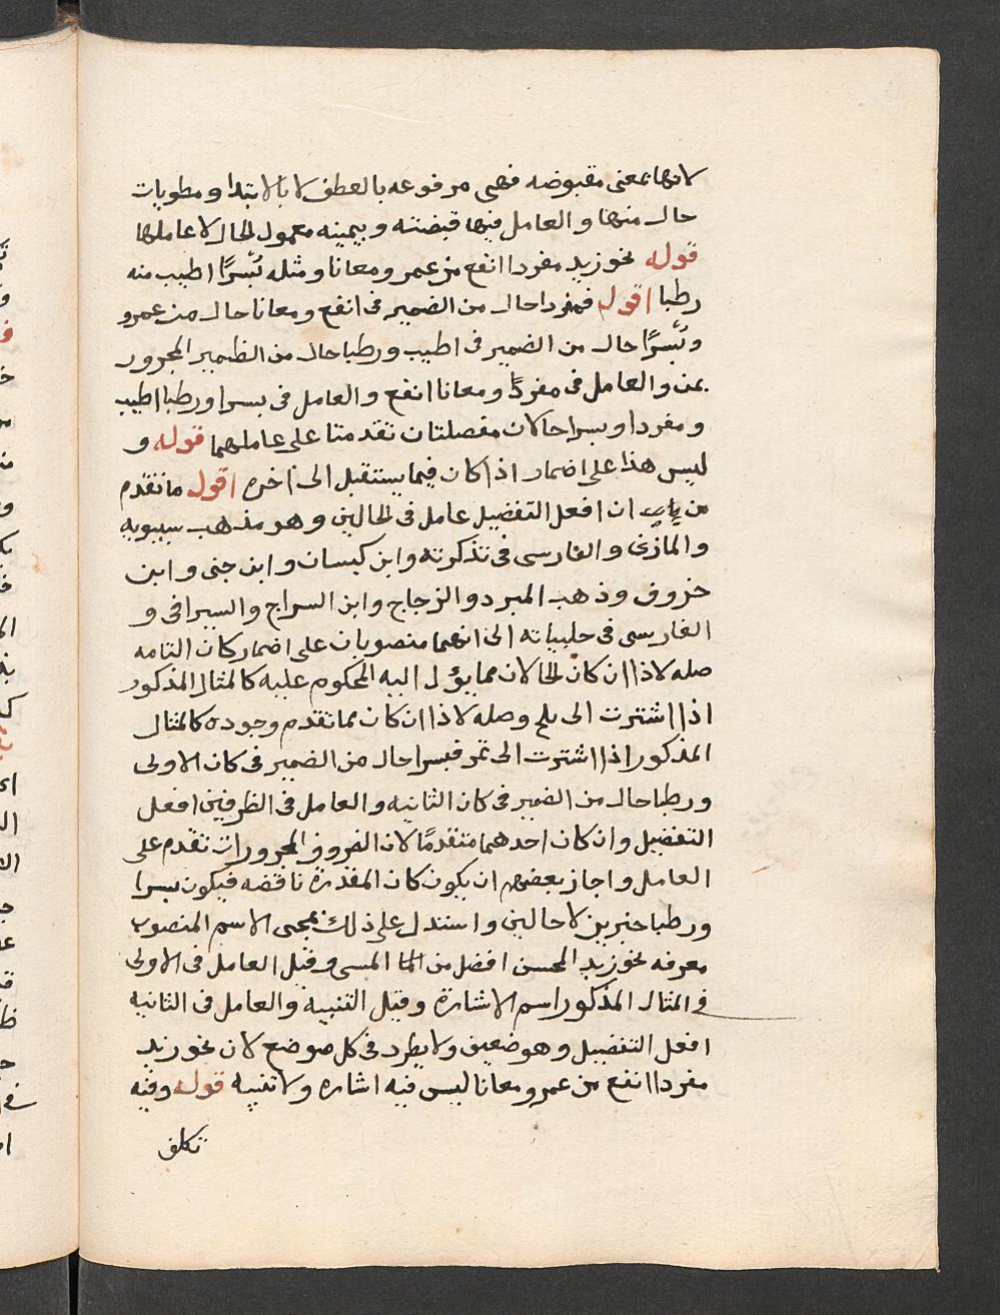 لانها بمعنى مقبوضه فهى مرفوعه بالعطف لا بالابتدا ومطويات
حال منها والعامل فيها قبضته وبيمينه معمول الحال لا عاملها
قوله نحو زيد مفردا انفع من عمرو معانا ومثله بُسرًا اطيب منه
رطبا اقول فمفردا حال من الضمير فى انفع ومعانا حال من عمرو
وبُسرًا حال من الضمير فى اطيب ورطبا حال من الظمير المجرور
بمن والعامل فى مفردًا ومعانا انفع والعامل فى بسرا ورطبا اطيب
ومفردا وبسرا حالان مفصلتان تقدمتا على عاملهما قوله و
ليس هذا على اضمار اذا كان فيما يستقبل الى اخره اقول ما تقدم
من ان افعل التفضيل عامل فى الحالين وهو مذهب سيبويه
والمازنى والفارسى فى تذكرته وابن كيسان وابن جنى وابن
خروف وذهب المبرد والزجاج وابن السراج والسيرافى و
الفارسى فى حلبياته الى انهما منصوبان على اضمار كان التامه
صله لاذا ان كان الحالان مما يؤل اليه المحكوم عليه كالمثال المذكور
اذا اشترت الى بلح وصله لاذ ان كان مما تقدم وجوده كالمثال
المذكور اذا اشترت الى تمر فبسرا حال من الضمير فى كان الاولى
ورطبا حال من الضمير فى كان الثانيه والعامل فى الظرفين افعل
التفضيل وان كان احدهما متقدمًا لان الضروف والمجرورات تقدم على
العامل واجاز بعضهم ان يكون كان المقدرة ناقضه فيكون بسرا
ورطبا خبرين لا حالين واستدل على ذلك بمجى الاسم المنصوب
معرفه نحو زيد المحسن افضل من المسى وقيل العامل فى الاولى
فى المثال المذكور اسم الاشارة وقيل التنبيه والعامل فى الثانيه
افعل التفضيل وهو ضعيف ولا يطرد فى كل موضع لان نحو زيد
مفردا انفع من عمرو معانا ليس فيه اشاره ولا تنبيه قوله وفيه
تكلف